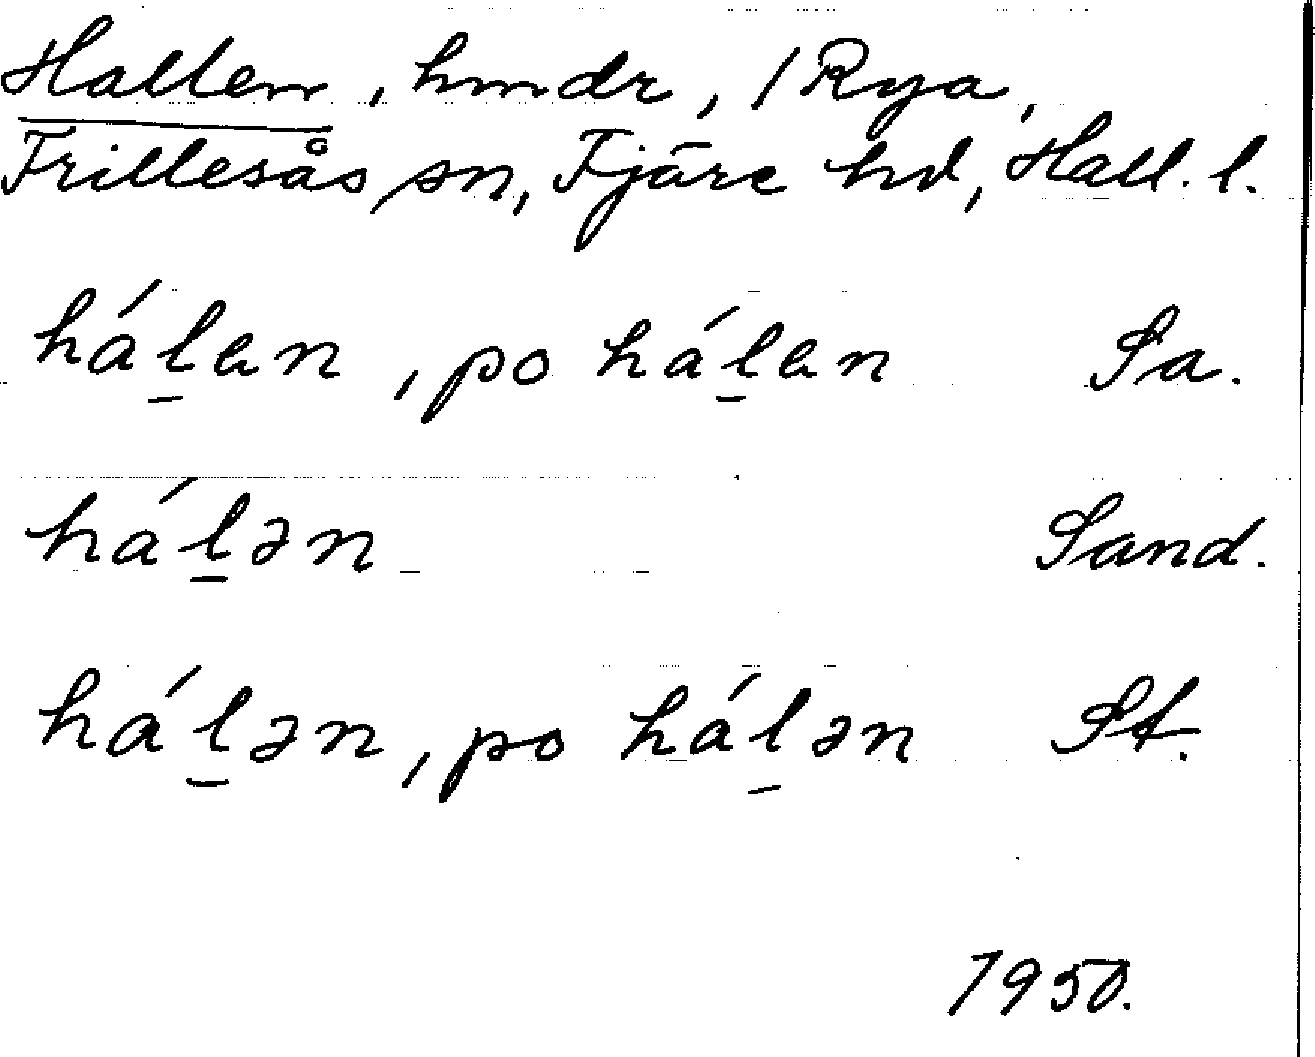 Hallen, hmdr, /Rya,
Frillesås sn, Fjäre hd, Hall. l.
há́l̠an, po há́l̠an Sa.
há́l̠ən Sand.
há́l̠ən, po há́l̠ən St.
1950.